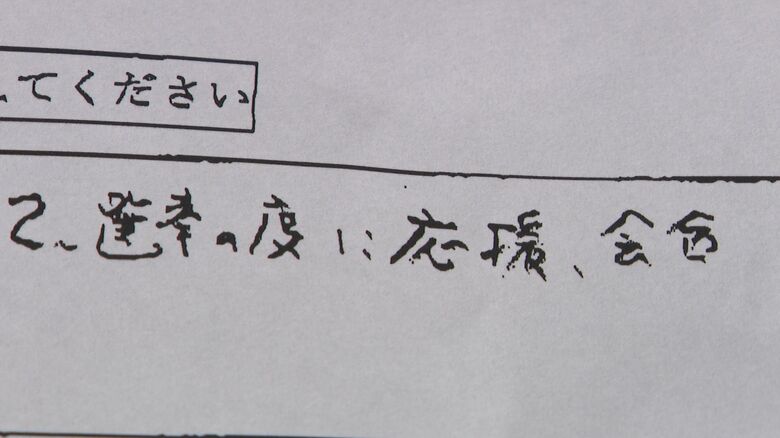 てください
2、選挙の度に応援、会合